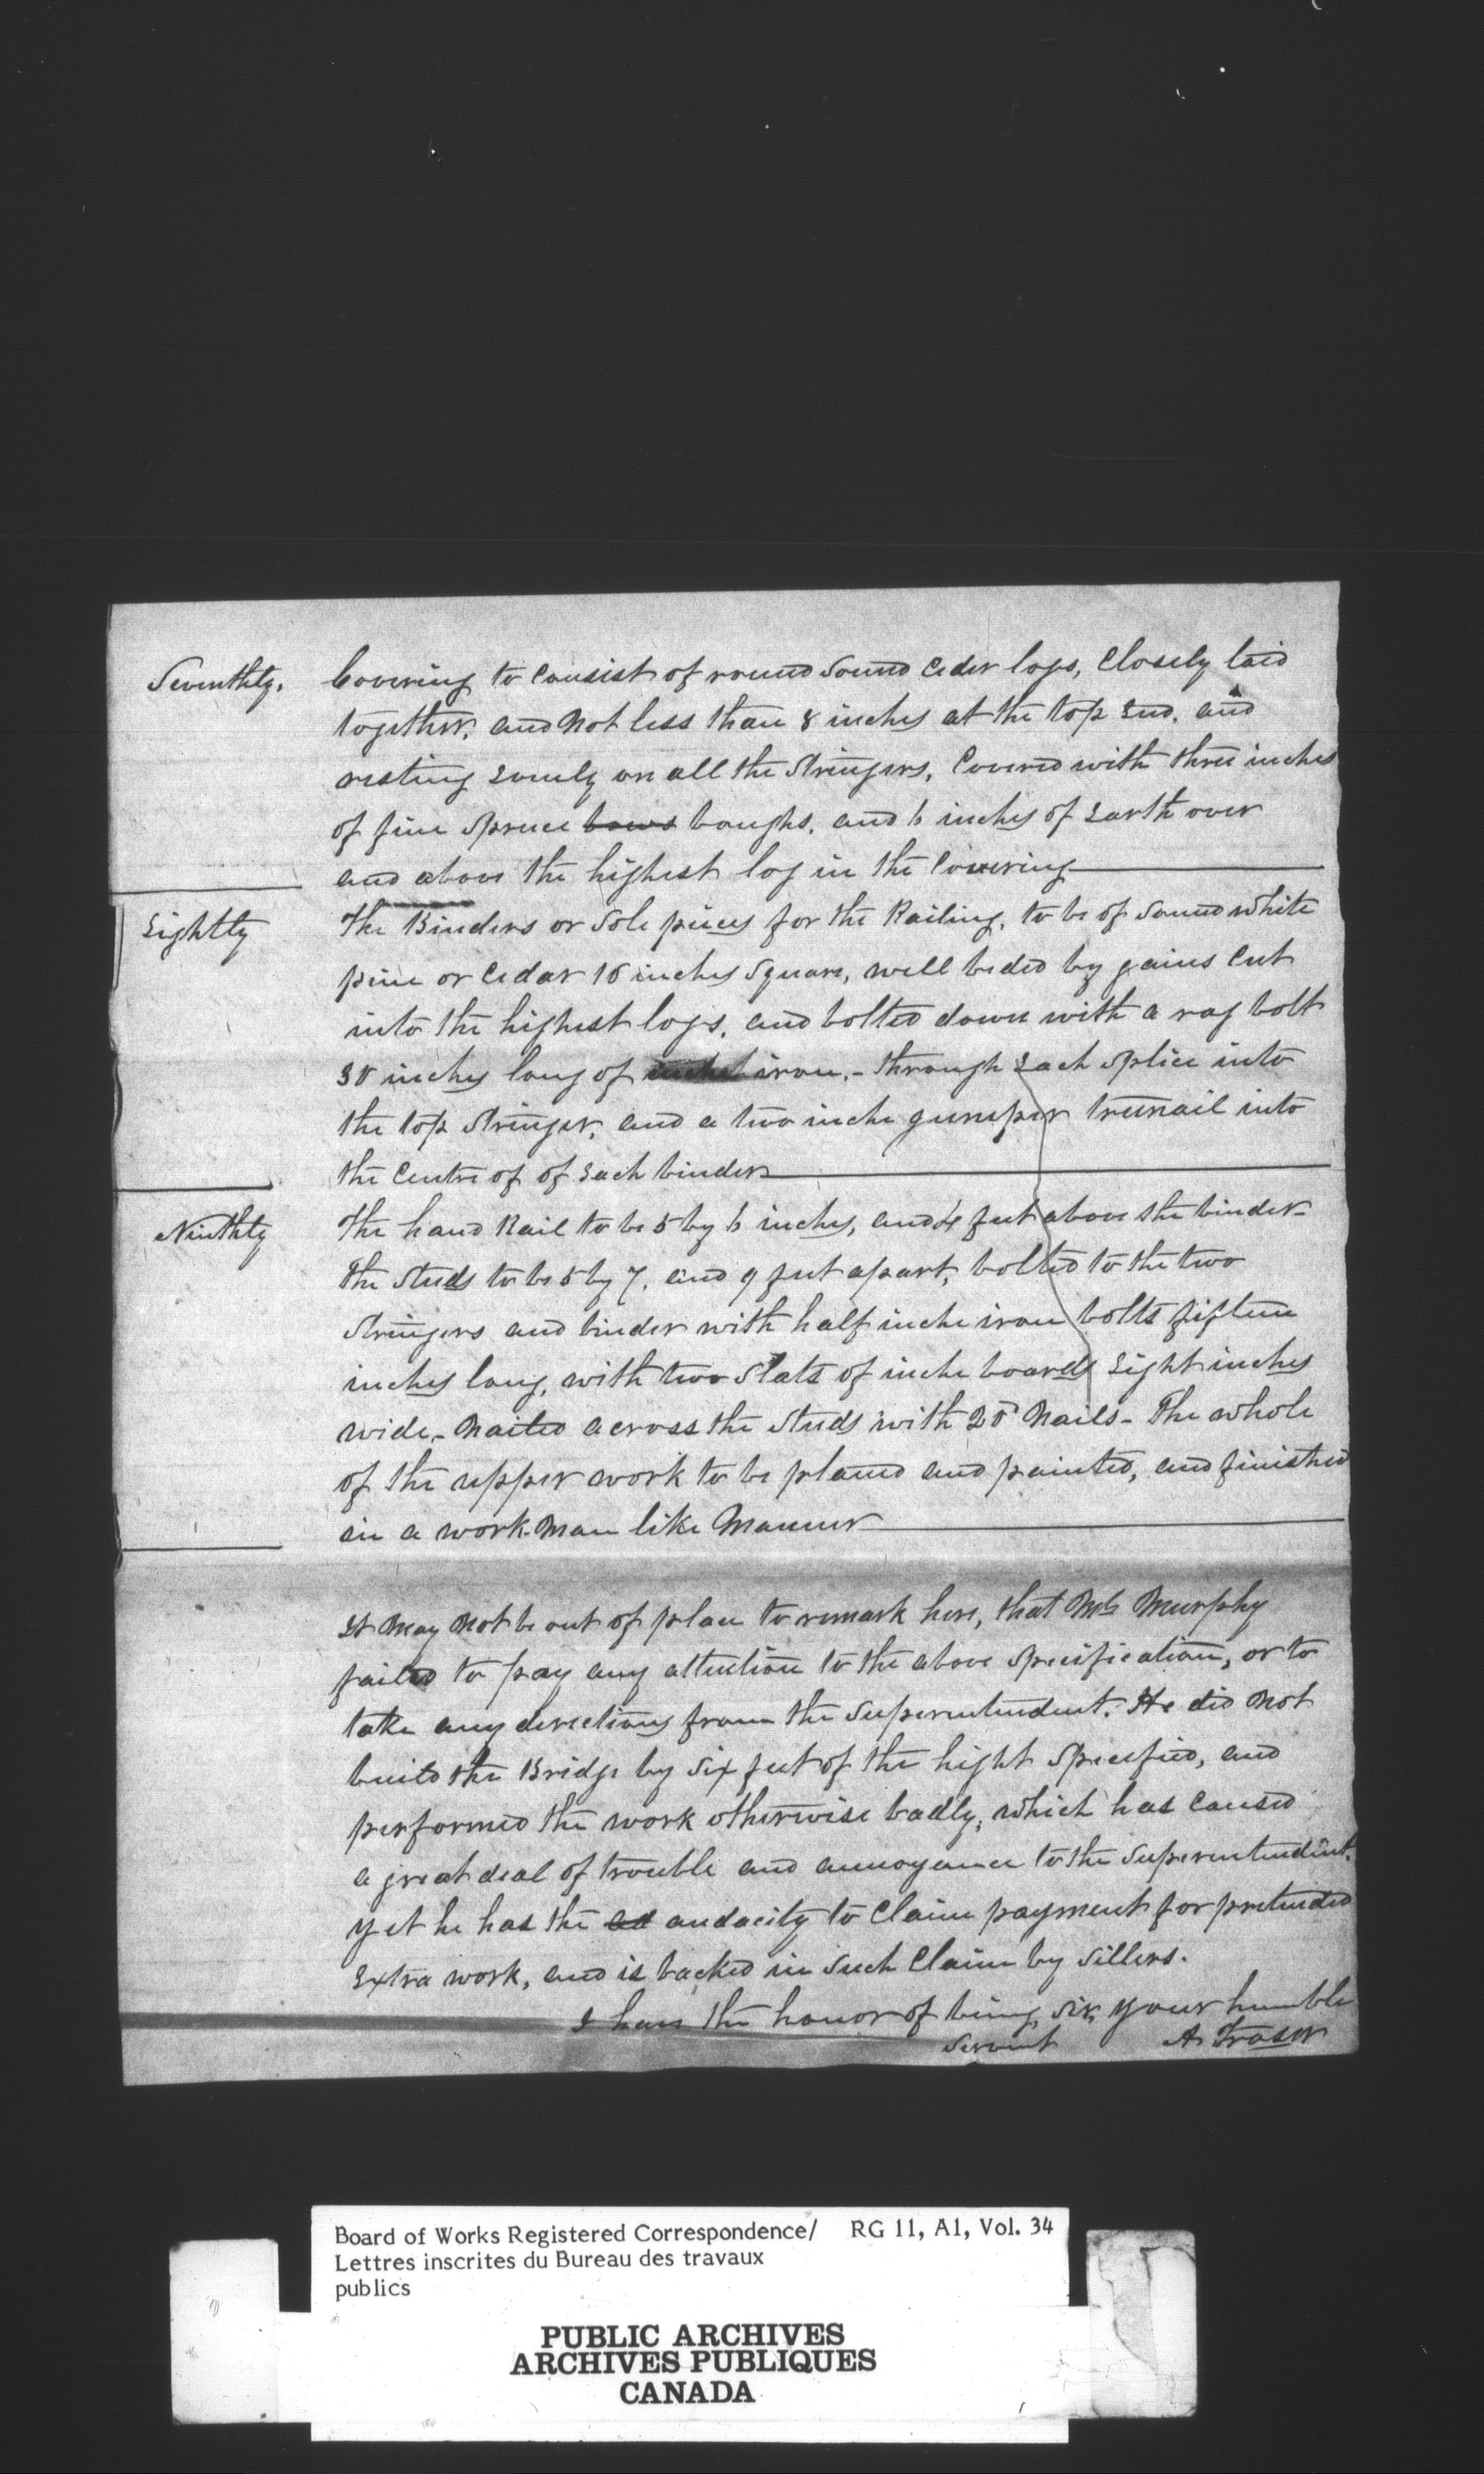 Seventhly. Covering to Consist of round Sound Ceder logs, Closely laid
together, and Not less than 8 inches at the top End, and
resting Evenly on all the Stringers, Covered with three inches
of fine Spruce bows boughs, and 6 inches of Earth over
and above the highest log in the Covering
Eightly The Binders or Sole pieces for the Railing, to be of Sound white
pine or Cedar 10 inches Square, well beded by gains Cut
into the highest logs, and bolted down with a rag bolt
30 inches long of iron, - through Each Splice into
the top Stringer, and a two inche treenail into
the Centre of of Each binder
Ninthly The hand Rail to be 5 by 6 inches, and 4 feet above the binder -
The Studs to be 5 by 7, and 9 feet apart, bolted to the two
Stringers and binder with half inche iron bolts fifteen
inches long, with two Slats of inche boards Eight inches
wide, - Nailed across the Studs with 20d Nails - The whole
of the upper work to be planed and painted, and finished
in a work-Man like Manner
It May Not be out of place to remark here, that Mr Murphy
failed to pay any attention to the above Specification, or to
take any directions from the Superentendent. He did Not
build the Bridge by Six feet of the hight Specified, and
performed the work otherwise badly, which has Caused
a great deal of trouble and annoyance to the Superentendent.
Yet he has the ad audacity to Claim payment for pretended
Extra work, and is backed in Such Claim by Sillers.
I have the honor of being, Sir, Your humble
Servent A. Fraser
Board of Works Registered Correspondence/ RG 11, A1, Vol. 34
Lettres inscrites du Bureau des travaux
publics
PUBLIC ARCHIVES
ARCHIVES PUBLIQUES
CANADA